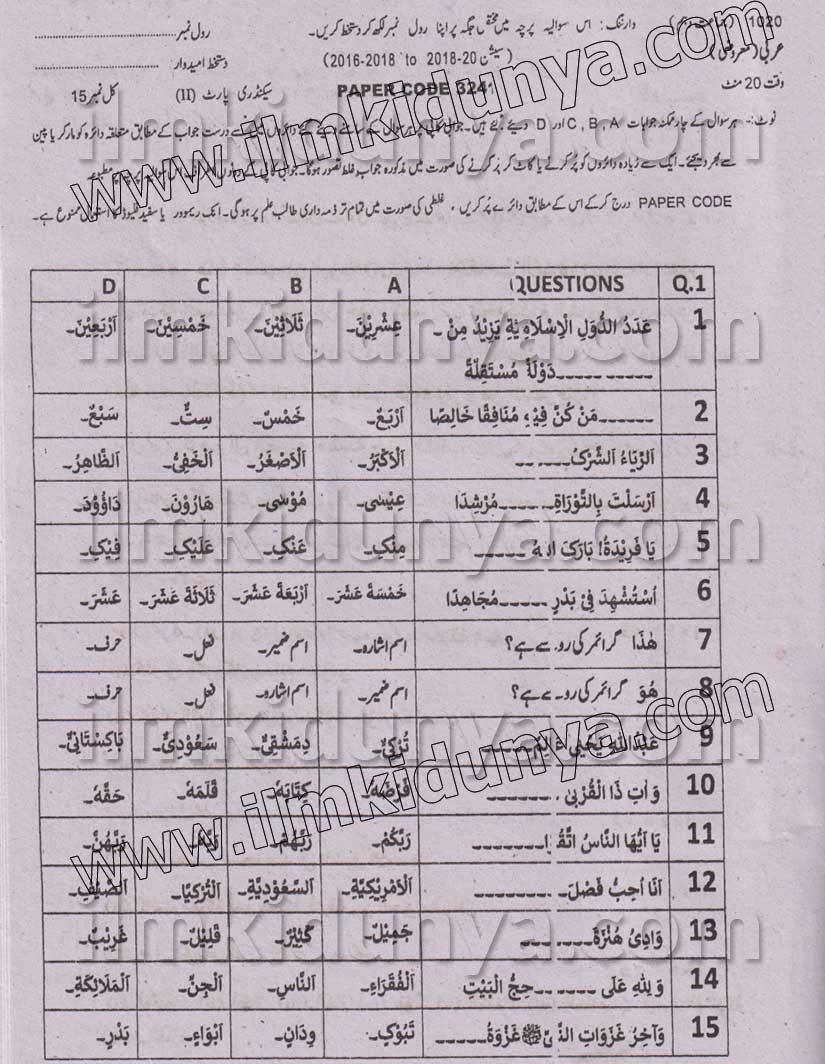 1020
وارننگ: اس سوالیہ پرچہ میں مختص جگہ پر اپنا رول نمبر لکھ کر دستخط کریں۔ رول نمبر
(سیشن 20-2018 to 2016-2018) دستخط امیدوار
وقت 20 منٹ PAPER CODE 3241 سیکنڈری پارٹ (II) کل نمبر 15
نوٹ:- ہر سوال کے چار ممکنہ جوابات C , B , A اور D دیئے گئے ہیں۔ درست جواب کے مطابق متعلقہ دائرہ کو مارکر یا پین
سے بھر دیجئے۔ ایک سے زیادہ دائروں کو پُر کرنے یا کاٹ کر پُر کرنے کی صورت میں مذکورہ جواب غلط تصور ہوگا۔
PAPER CODE درج کرکے اس کے مطابق دائرے پُر کریں ، غلطی کی صورت میں تمام تر ذمہ داری طالب علم پر ہوگی۔ انک ریموور یا سفید فلیوڈ کا استعمال ممنوع ہے۔
Q.1 QUESTIONS A B C D
1 عَدَدُ الدُّوَلِ الْاِسْلَامِيَّةِ يَزِيْدُ مِنْ عِشْرِيْنَ۔ ثَلَاثِيْنَ۔ خَمْسِيْنَ۔ اَرْبَعِيْنَ۔
---------- دَوْلَةً مُسْتَقِلَّةً
2 ------مَنْ كُنَّ فِيْهِ مُنَافِقًا خَالِصًا اَرْبَعٌ۔ خَمْسٌ۔ سِتٌّ۔ سَبْعٌ۔
3 اَلرِّيَاءُ اَلشِّرْكُ------ اَلْاَكْبَرُ۔ اَلْاَصْغَرُ۔ اَلْخَفِيُّ۔ اَلظَّاهِرُ۔
4 اَرْسَلْتَ بِالتَّوْرَاةِ------مُرْشِدًا عِيْسٰى۔ مُوْسٰى۔ هَارُوْنَ۔ دَاوُوْدَ۔
5 يَا فَرِيْدَةُ! بَارَكَ اللهُ ------ مِنْكِ۔ عَنْكِ۔ عَلَيْكِ۔ فِيْكِ۔
6 اُسْتُشْهِدَ فِيْ بَدْرٍ ------مُجَاهِدًا خَمْسَةَ عَشَرَ۔ اَرْبَعَةَ عَشَرَ۔ ثَلَاثَةَ عَشَرَ۔ عَشَرَ۔
7 هٰذَا گرائمر کی رو سے ہے؟ اسم اشارہ۔ اسم ضمیر۔ فعل۔ حرف۔
8 هُوَ گرائمر کی رو سے ہے؟ اسم ضمیر۔ اسم اشارہ۔ فعل۔ حرف۔
9 عَبْدُ اللهِ يَحْيٰى عَالِمٌ------ تُرْكِيٌّ۔ دِمَشْقِيٌّ۔ سَعُوْدِيٌّ۔ بَاكِسْتَانِيٌّ۔
10 وَاٰتِ ذَا الْقُرْبٰى ------ فَرْضَهٗ۔ كِتَابَهٗ۔ قَلَمَهٗ۔ حَقَّهٗ۔
11 يَا اَيُّهَا النَّاسُ اتَّقُوْا------ رَبَّكُمْ۔ رَبَّهُمْ۔ رَبَّهٗ۔ رَبَّهُنَّ۔
12 اَنَا اُحِبُّ فَصْلَ------ اَلْاَمْرِيْكِيَّةِ۔ اَلسَّعُوْدِيَّةِ۔ اَلتُّرْكِيَّا۔ اَلصَّيْفِ۔
13 وَادِيْ هُنْزَةَ------ جَمِيْلٌ۔ كَثِيْرٌ۔ قَلِيْلٌ۔ غَرِيْبٌ۔
14 وَلِلّٰهِ عَلَى ------حِجُّ الْبَيْتِ اَلْفُقَرَاءِ۔ اَلنَّاسِ۔ اَلْجِنِّ۔ اَلْمَلَائِكَةِ۔
15 وَآخِرُ غَزَوَاتِ النَّبِيِّ ﷺ غَزْوَةُ------ تَبُوْكٍ۔ وَدَانٍ۔ اَبْوَاءٍ۔ بَدْرٍ۔
www.ilmkidunya.com
ilmkidunya.com
ilmkidunya.com
ilmkidunya.com
ilmkidunya.com
ilmkidunya.com
www.ilmkidunya.com
ilmkidunya.com